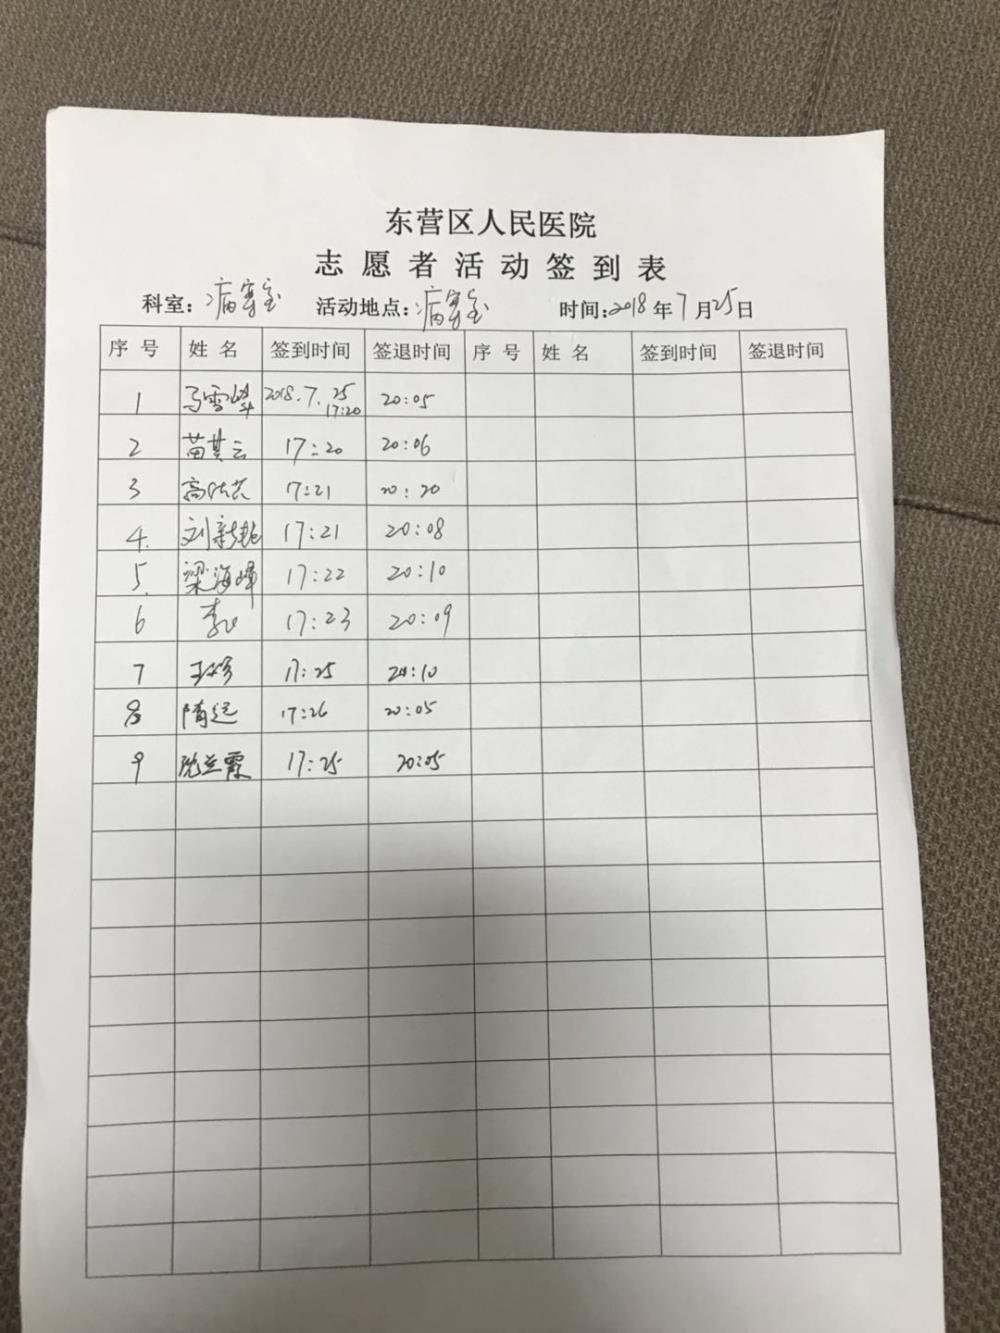 东营区人民医院
志愿者活动签到表
科室：病案室 活动地点：病案室 时间：2018年7月25日
序号 姓名 签到时间 签退时间 序号 姓名 签到时间 签退时间
1 马雪 2018.7.25 17:20 20:05
2 苗其云 17:20 20:06
3 高 17:21 20:20
4. 刘新艳 17:21 20:08
5. 梁海峰 17:22 20:10
6 17:23 20:09
7 17:25 20:10
8 隋远 17:26 20:05
9 兰霞 17:25 20:05